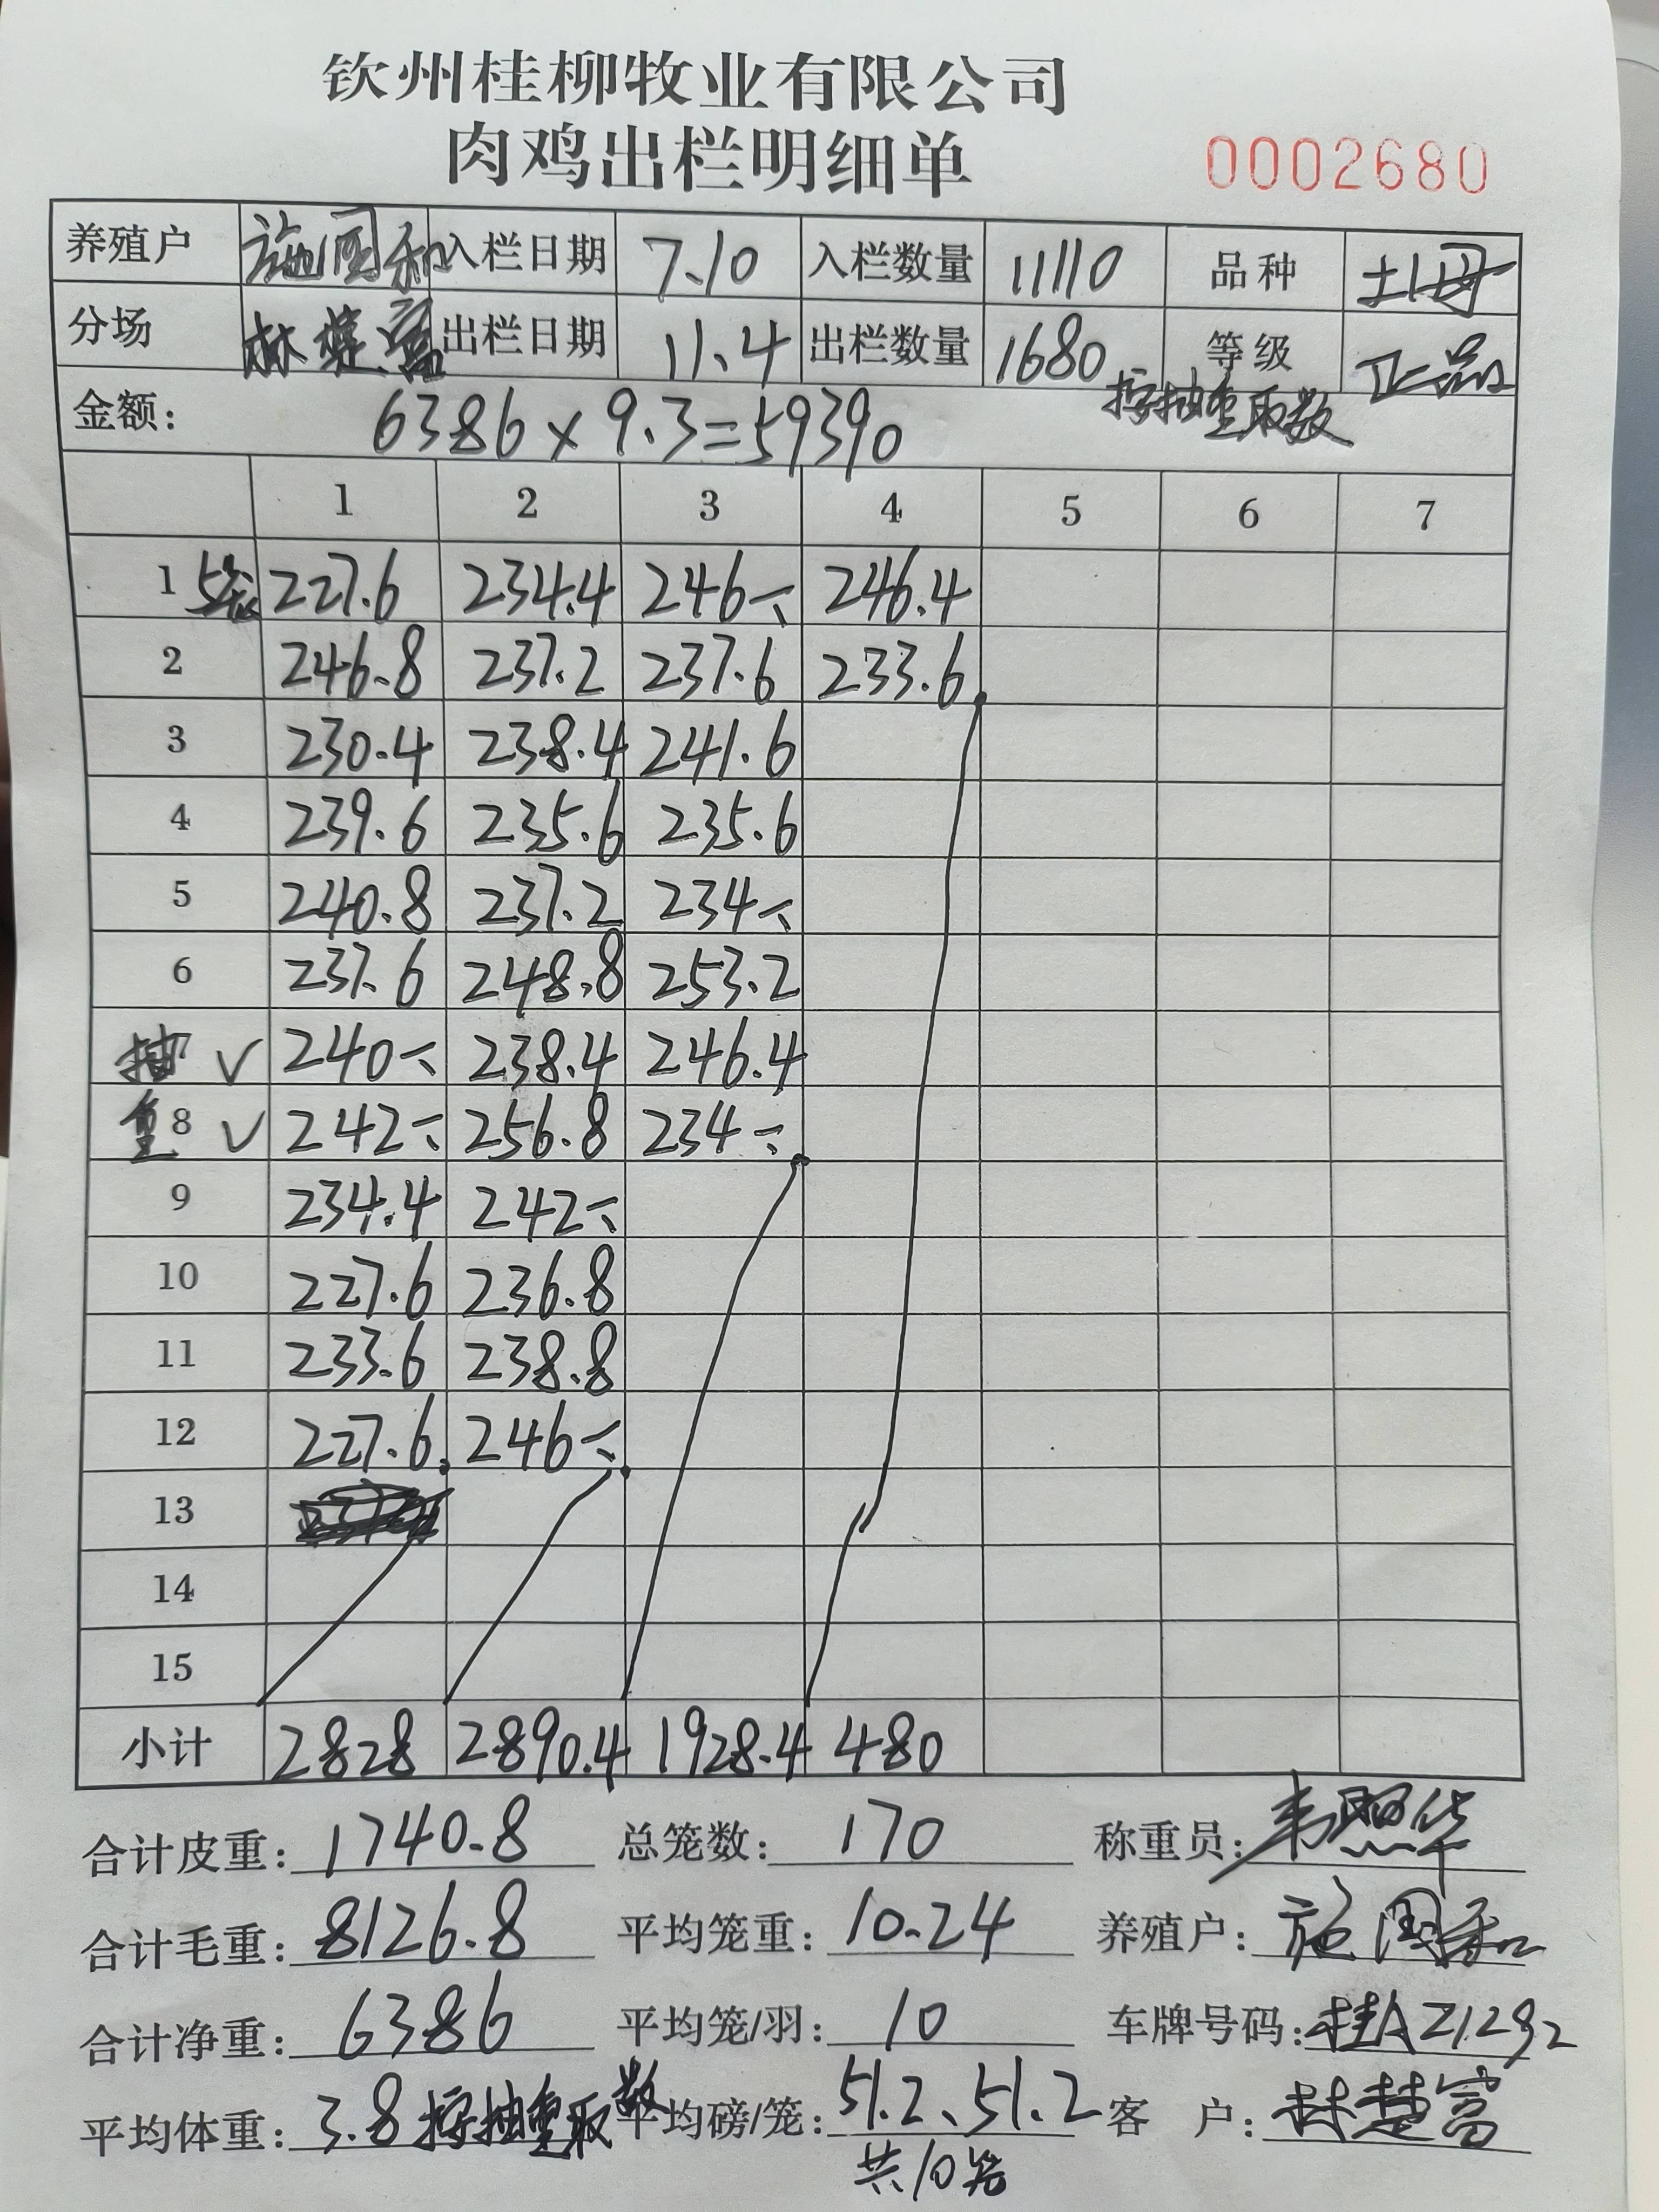 钦州桂柳牧业有限公司
肉鸡出栏明细单 0002680
养殖户 施国和 入栏日期 7.10 入栏数量 11110 品种 土母
分场 林楚富 出栏日期 11.4 出栏数量 1680 等级 正品
按抽重取数
金额: 6386×9.3=59390
1 2 3 4 5 6 7
1 5笼 227.6 234.4 246 246.4
2 246.8 237.2 237.6 233.6
3 230.4 238.4 241.6
4 239.6 235.6 235.6
5 240.8 237.2 234
6 237.6 248.8 253.2
抽 7 √ 240 238.4 246.4
重 8 √ 242 256.8 234
9 234.4 242
10 227.6 236.8
11 233.6 238.8
12 227.6 246
13
14
15
小计 2828 2890.4 1928.4 480
合计皮重: 1740.8 总笼数: 170 称重员: 韦照华
合计毛重: 8126.8 平均笼重: 10.24 养殖户: 施国和
合计净重: 6386 平均笼/羽: 10 车牌号码: 桂AZ1292
平均体重: 3.8 按抽重取数 平均磅/笼: 51.2、51.2 客 户: 林楚富
共10笼